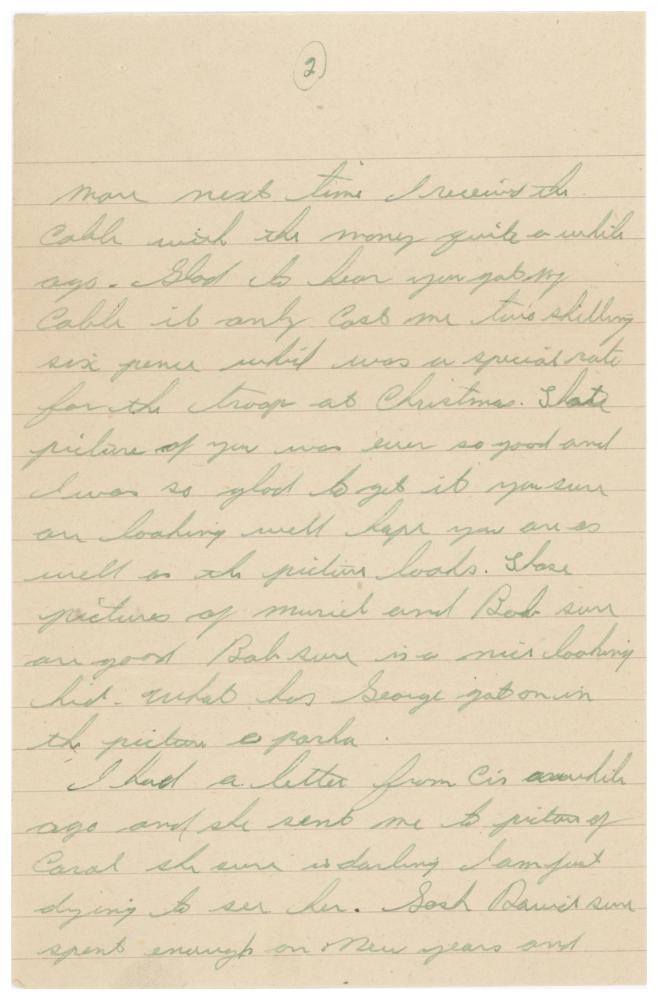 2
more next time I received the
Cable with the money quite a while
ago. Glad to hear you got my
Cable it only Cost me two shilling
six pence which was a special rate
for the troop at Christmas. That
picture of you was ever so good and
I was so glad to get it you sure
are looking well hope you are as
well as the picture looks. Those
pictures of Muriel and Bob sure
are good Bob sure is a nice looking
kid. What has George got on in
the picture a parka.
I had a letter from Cis awhile
ago and she sent me to picture of
Carol she sure is darling I am just
dying to see her. Gosh David sure
spent enough on New years and